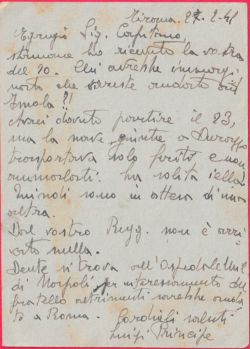 Tirana. 27-2-41
Egregio Sig. Capitano,
stamane ho ricevuto la vs. 
del 20. Chi avrebbe 
che sareste andato 
Imola?!
dovuto partire il 23,
ma la nave giunta a Durazzo
trasportava solo feriti e non
ammalati. la solita iella!
Quindi sono in attesa di 
altra.
Dal vostro Regg. non è arri
vato nulla.
Dente si trova all'Ospedale Mil.
di Napoli per interessamento del
fratello altrimenti sarebbe 
to a Roma.
Cordiali saluti
Luigi Principe